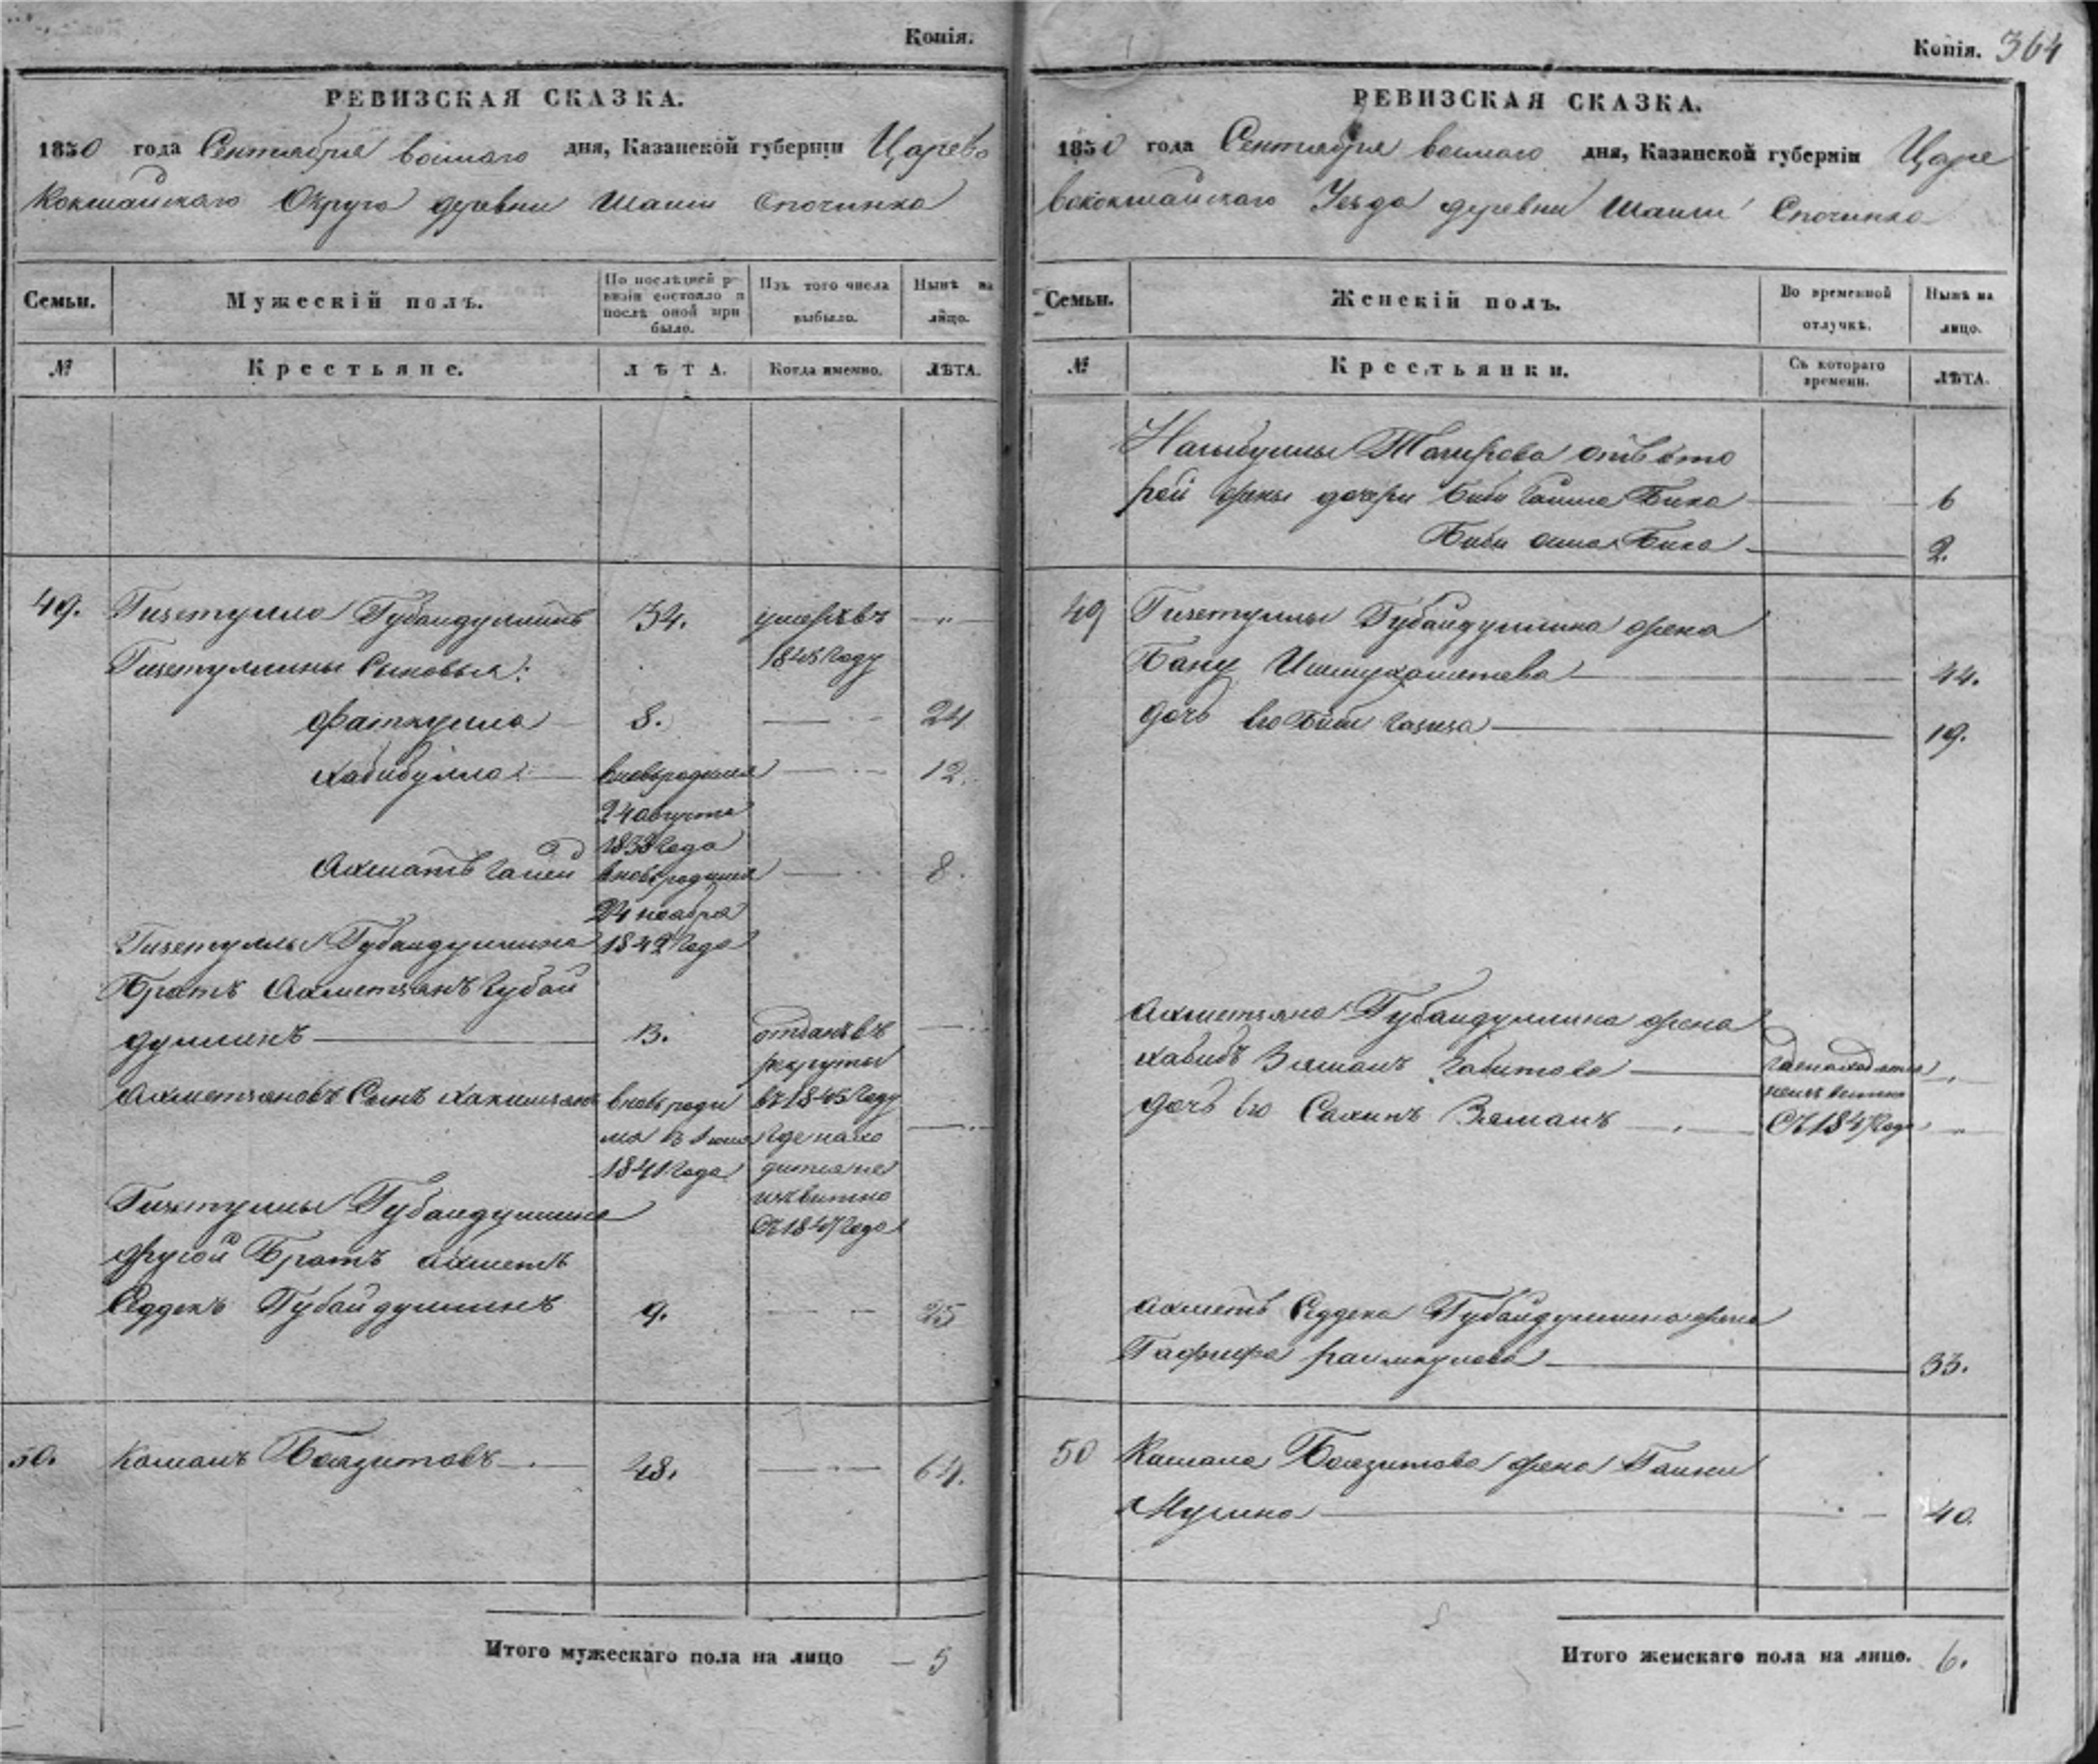 Копія.
РЕВИЗСКАЯ СКАЗКА.
1850 года Сентября восмаго дня, Казанской губерніи Царево
кокшайскаго Округа деревни Шаши Спочинка
Семьи.
Мужескій полъ.
По послѣдней ре
визіи состояло и
послѣ оной при
было.
Изъ того числа
выбыло.
Нынѣ на
лицо.
№
Крестьяне.
ЛѢТА.
Когда именно.
ЛѢТА.
49. Гизетулла Губайдуллинъ 34. умеръ въ — „ —
Гизетуллины Сыновья: 1845 году
Фаткулла 8. — 24
Хабибулла вновьродился — 12.
24 августа
1838 года
Ахматъ Галей вновьродился — 8.
24 ноября
Гизетуллы Губайдуллина 1842 года
Братъ Ахметзянъ Губай
дуллинъ — 13. отданъ въ
рекруты
Ахметзяновъ Сынъ Хакимзянъ вновь роди въ 1845 году
1841 года
Где нахо
дится не
извѣстно
Съ 1847 года
Гизетуллы Губайдуллина
другой Братъ Ахметъ
Седдекъ Губайдуллинъ 9. — 25
50. Камалъ Баязитовъ — 48. — 64.
Итого мужескаго пола на лицо — 5
Копія. 364
РЕВИЗСКАЯ СКАЗКА.
1850 года Сентября восмаго дня, Казанской губерніи Царе
вококшайскаго Уезда деревни Шаши Спочинка
Семьи.
Женскій полъ.
Во временной
отлучкѣ.
Нынѣ на
лицо.
№
Крестьянки.
Съ котораго
времени.
ЛѢТА.
Тагирова отъ вто
рой жены дочери Биби Бика — 6
Биби Бика — 2.
49 Гизетуллы Губайдуллина жена
Бану Ишмухаметева — 44.
дочь его Биби Газиза — 19.
Ахметзяна Губайдуллина жена
Хабибъ Земалъ Габитова — где находятся
неизвѣстно
дочь его Салихъ Земалъ — Съ 1847 года
Ахметъ Седдека Губайдуллина жена
Гафифа — 33.
50 Камала Баязитова жена
Мусина — 40.
Итого женскаго пола на лицо. 6.